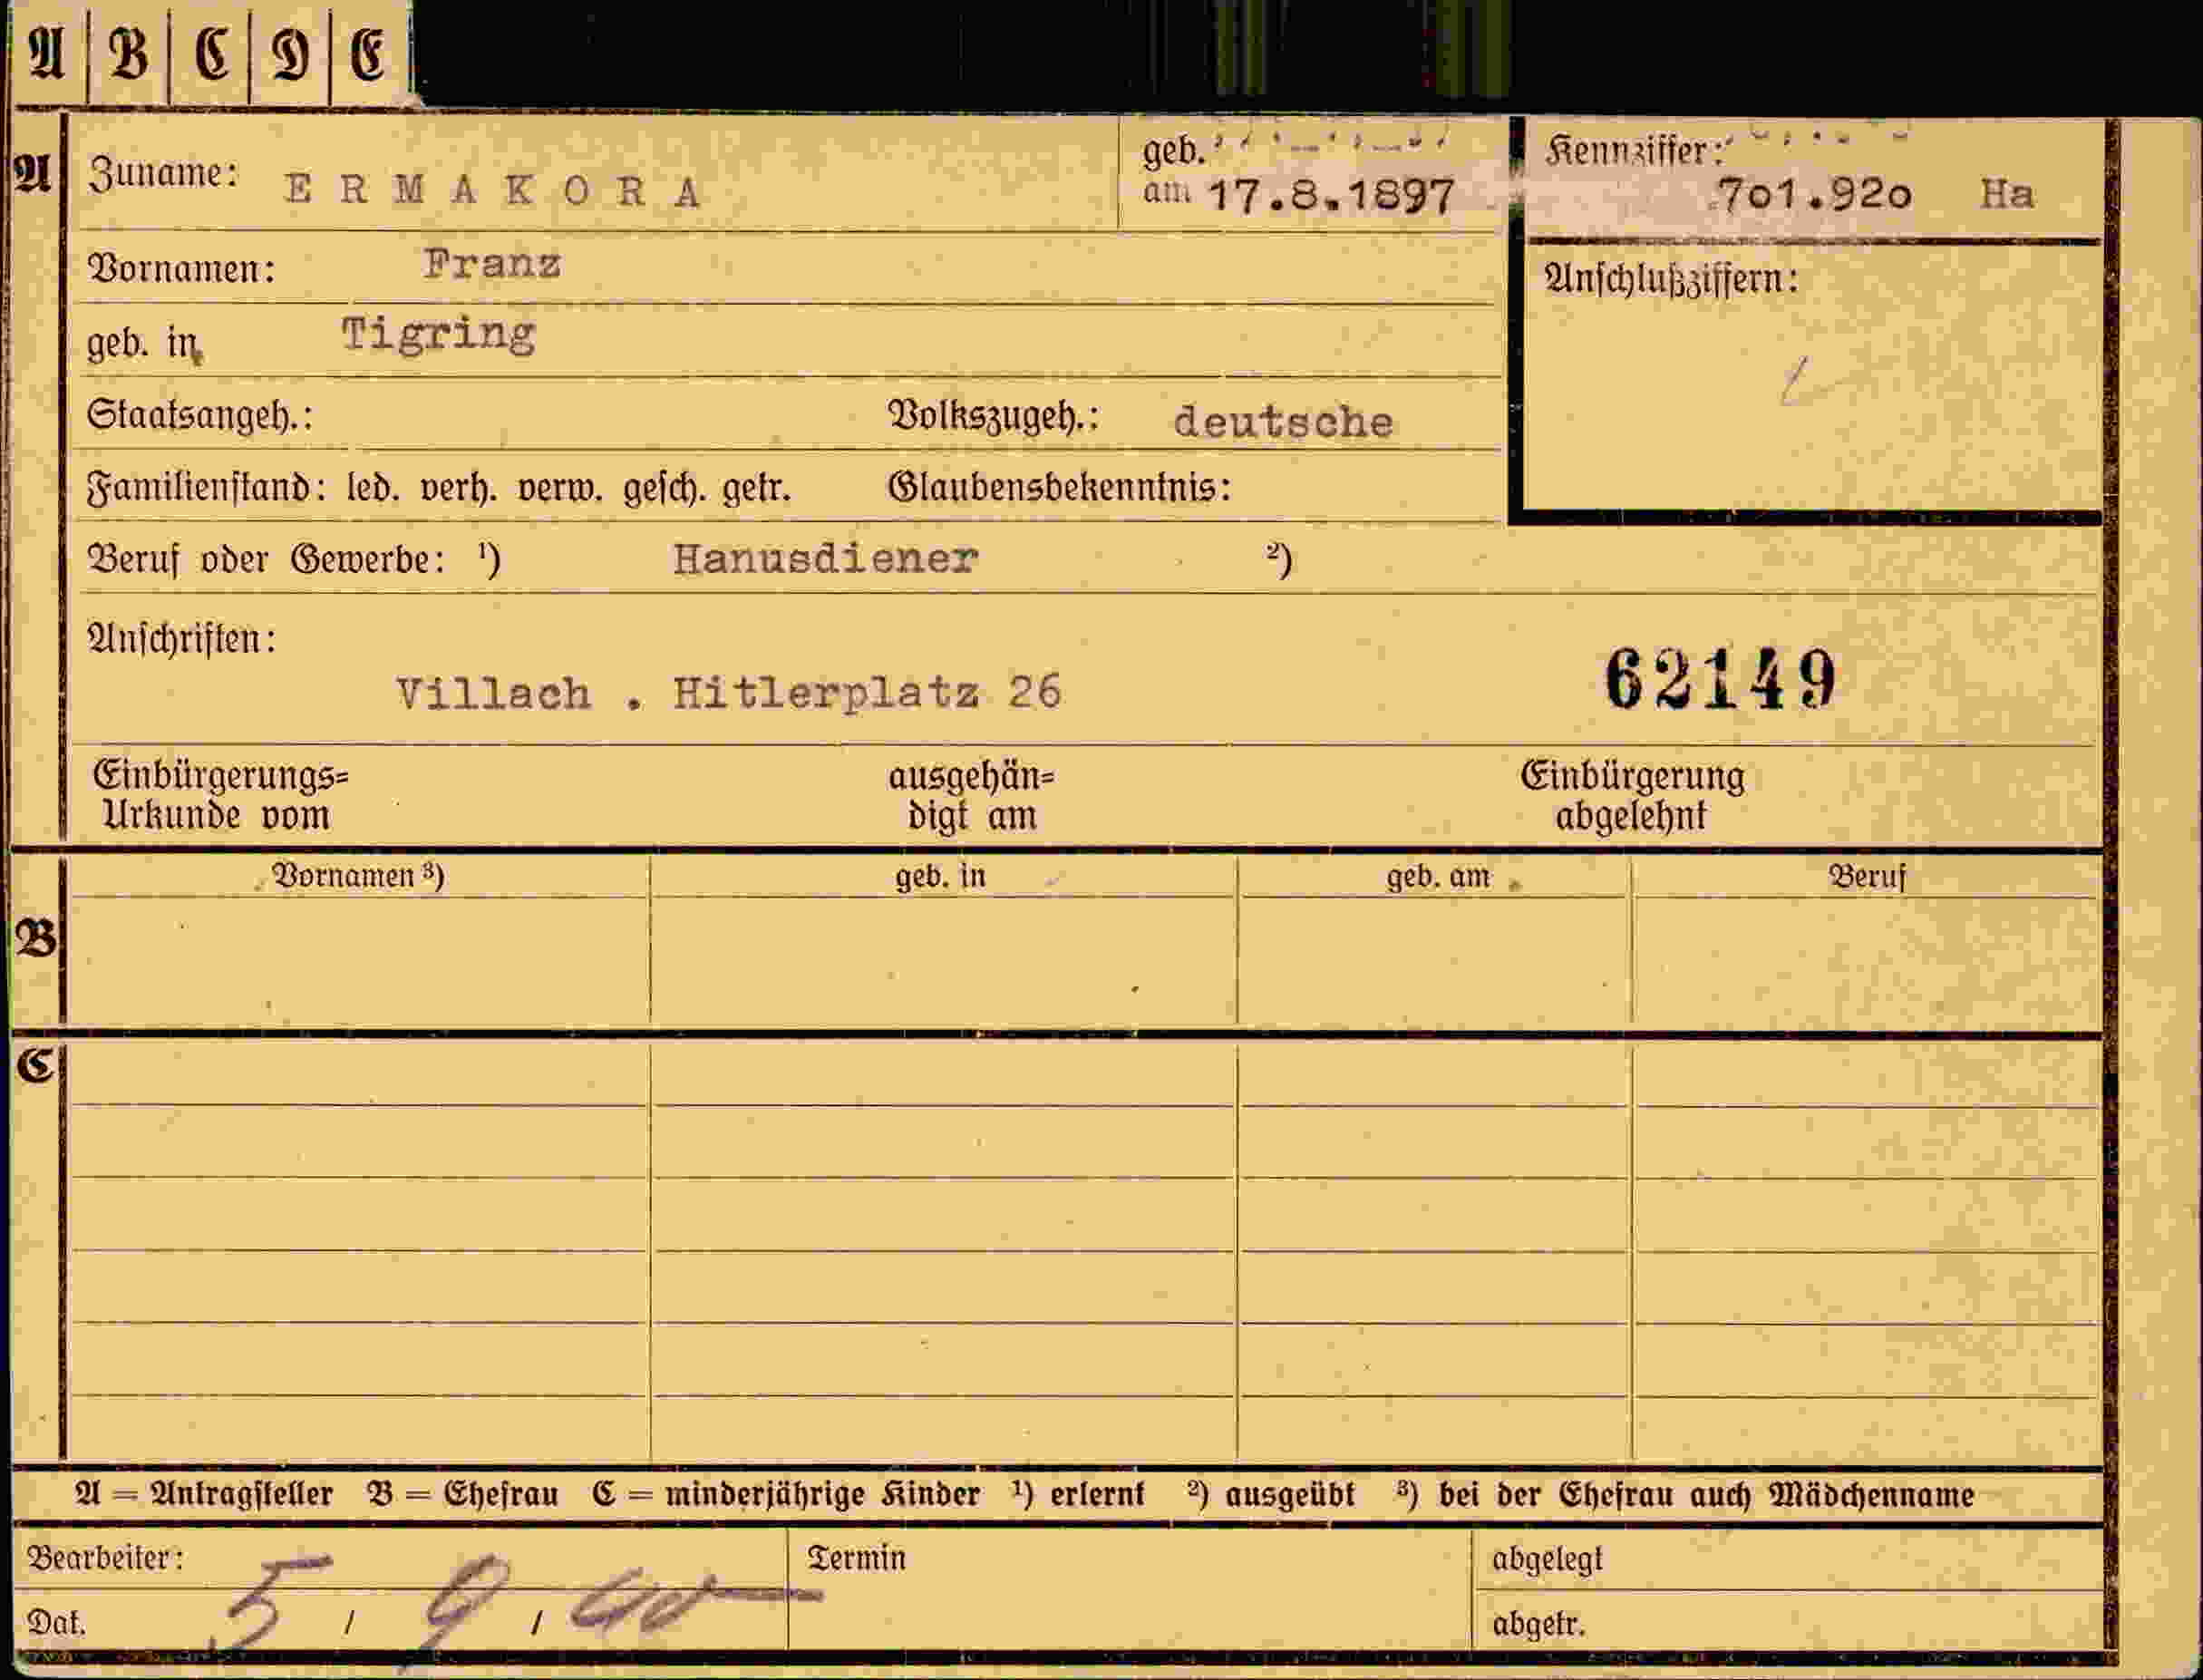 A B C D E
A Zuname: ERMAKORA geb. am 17.8.1897 Kennziffer: 7o1.92o Ha
Vornamen: Franz
Anschlußziffern:
geb. in Tigring
Staatsangeh.: Volkszugeh.: deutsche
Familienstand: led. verh. verw. gesch. getr. Glaubensbekenntnis:
Beruf oder Gewerbe: ¹) Hanusdiener ²)
Anschriften:
62149
Villach . Hitlerplatz 26
Einbürgerungs= ausgehän= Einbürgerung
Urkunde vom digt am abgelehnt
Vornamen ³) geb. in geb. am Beruf
B
C
A = Antragsteller B = Ehefrau C = minderjährige Kinder ¹) erlernt ²) ausgeübt ³) bei der Ehefrau auch Mädchenname
Bearbeiter: Termin abgelegt
Dat. 5 / 9 / 40 abgetr.